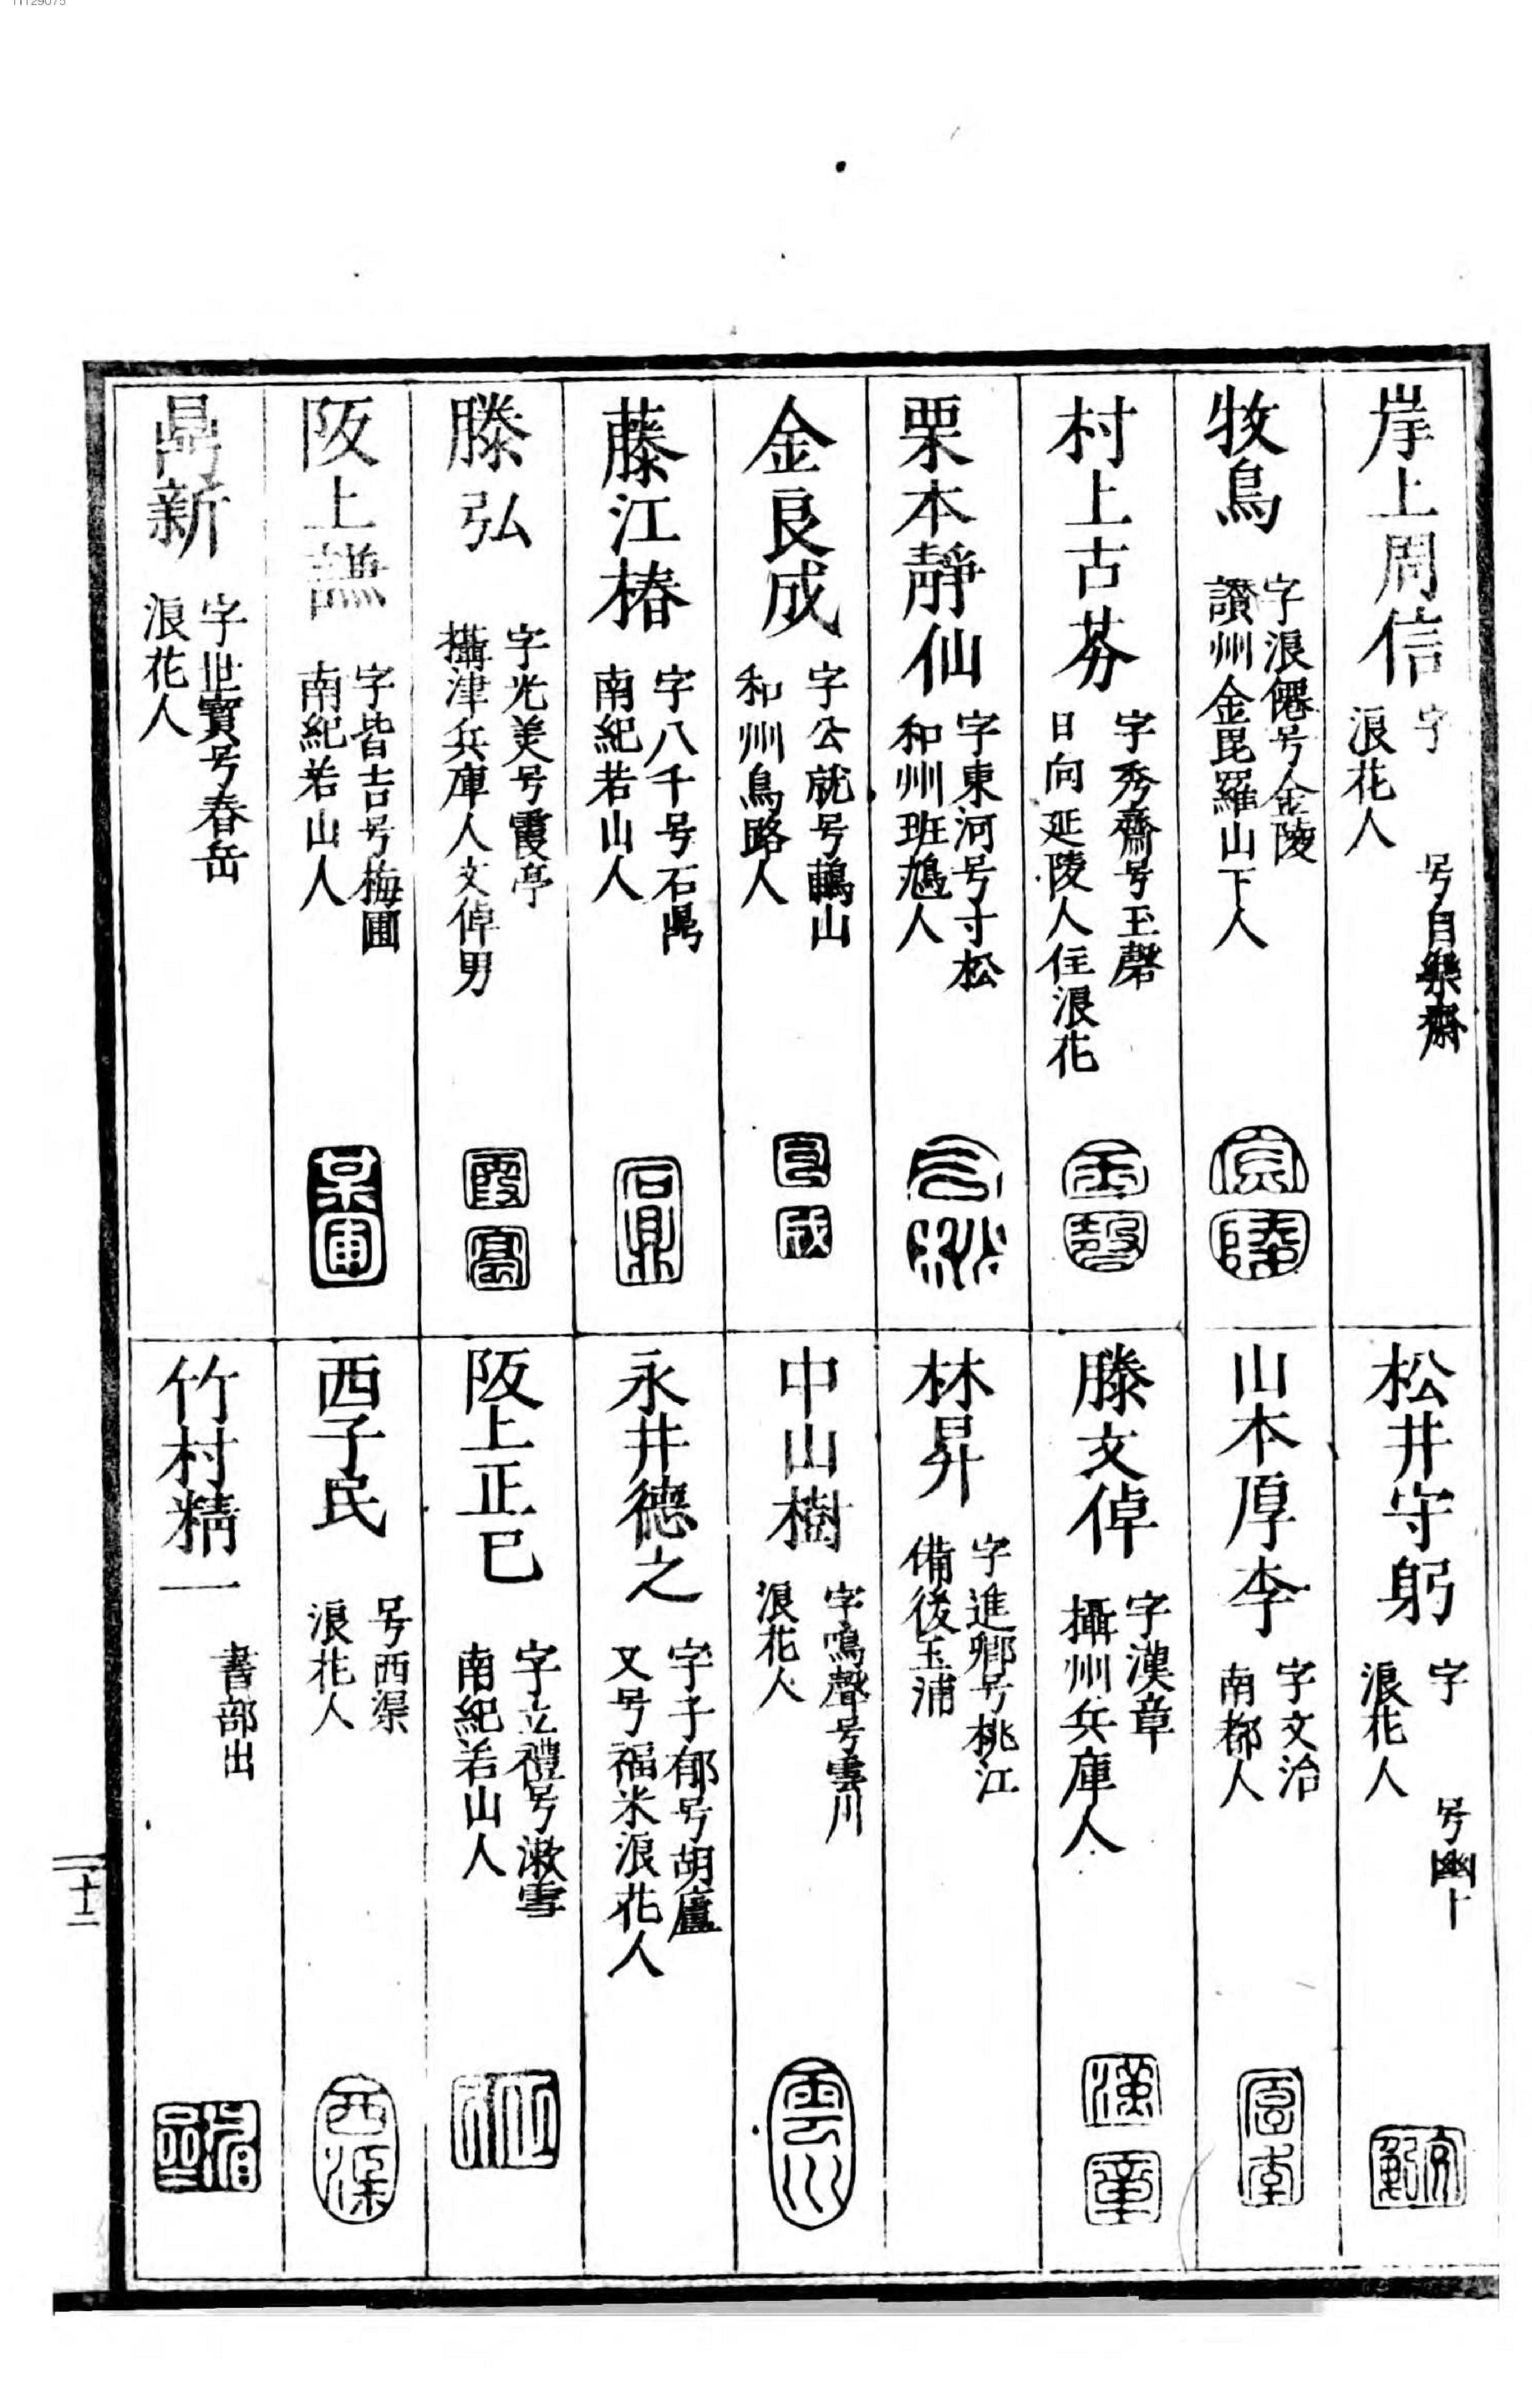 11129075
岸上周信
字　号自樂齋
浪花人
牧鳥
字浪僊号金陵
讃州金毘羅山下人
金陵
村上古芬
字秀齋号玉磬
日向延陵人住浪花
玉磬
栗本靜仙
字東河号寸松
和州班鳩人
金良成
字公就号鶴山
和州鳥路人
良成
藤江椿
字八千号石鼎
南紀若山人
石鼎
滕弘
字光美号霞亭
攝津兵庫人文倬男
霞亭
阪上謙
字皆吉号梅圃
南紀若山人
某圃
鼎新
字世寶号春岳
浪花人
松井守躬
字　号幽上
浪花人
守躬
山本厚李
字文治
南都人
厚李
滕文倬
字漢章
攝州兵庫人
漢章
林昇
字進卿号桃江
備後玉浦
中山樹
字鳴聲号雲川
浪花人
雲川
永井德之
字子郁号胡廬
又号福米浪花人
阪上正已
字立禮号漱雪
南紀若山人
西子民
号西渠
浪花人
西渠
竹村精一
書部出
十二